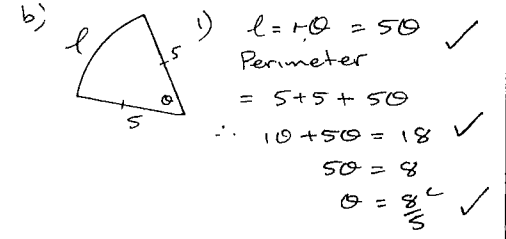 b) i) l = rθ = 5θ ✓
l
5
θ
5
Perimeter
= 5+5+5θ
∴ 10+5θ = 18 ✓
5θ = 8
θ = 8/5 ᶜ ✓